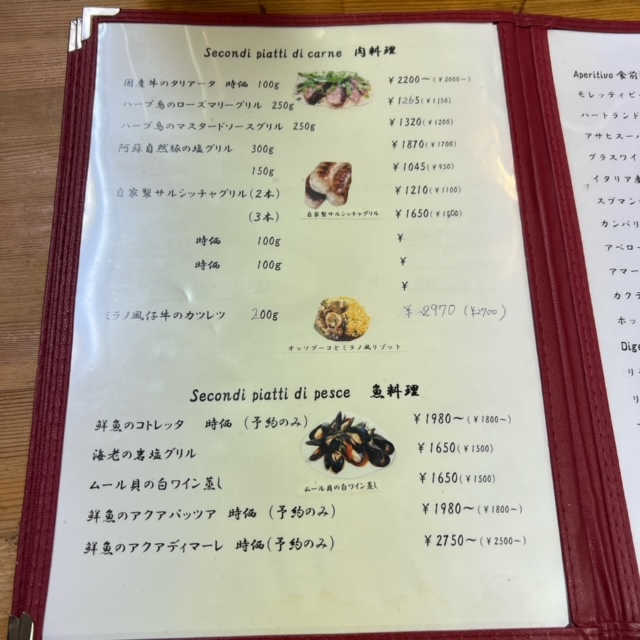 Secondi piatti di carne 肉料理
国産牛のタリアータ 時価 100g ¥2200~(¥2000~)
ハーブ鳥のローズマリーグリル 250g ¥1265(¥1150)
ハーブ鳥のマスタードソースグリル 250g ¥1320(¥1200)
阿蘇自然豚の塩グリル 300g ¥1870(¥1700)
150g ¥1045(¥950)
自家製サルシッチャグリル(2本) ¥1210(¥1100)
(3本) ¥1650(¥1500)
自家製サルシッチャグリル
時価 100g ¥
時価 100g ¥
¥
ミラノ風仔牛のカツレツ 200g ¥2970(¥2700)
オッソブーコとミラノ風リゾット
Secondi piatti di pesce 魚料理
鮮魚のコトレッタ 時価 (予約のみ) ¥1980~(¥1800~)
海老の岩塩グリル ¥1650(¥1500)
ムール貝の白ワイン蒸し ¥1650(¥1500)
ムール貝の白ワイン蒸し
鮮魚のアクアパッツア 時価 (予約のみ) ¥1980~(¥1800~)
鮮魚のアクアディマーレ 時価(予約のみ) ¥2750~(¥2500~)
Aperitivo 食前
モレッティビ
ハートランド
アサヒスー
グラスワイ
イタリア産
スプマン
カンパリ
アペロー
アマー
カクテ
ホッ
Dige
リモ
リ